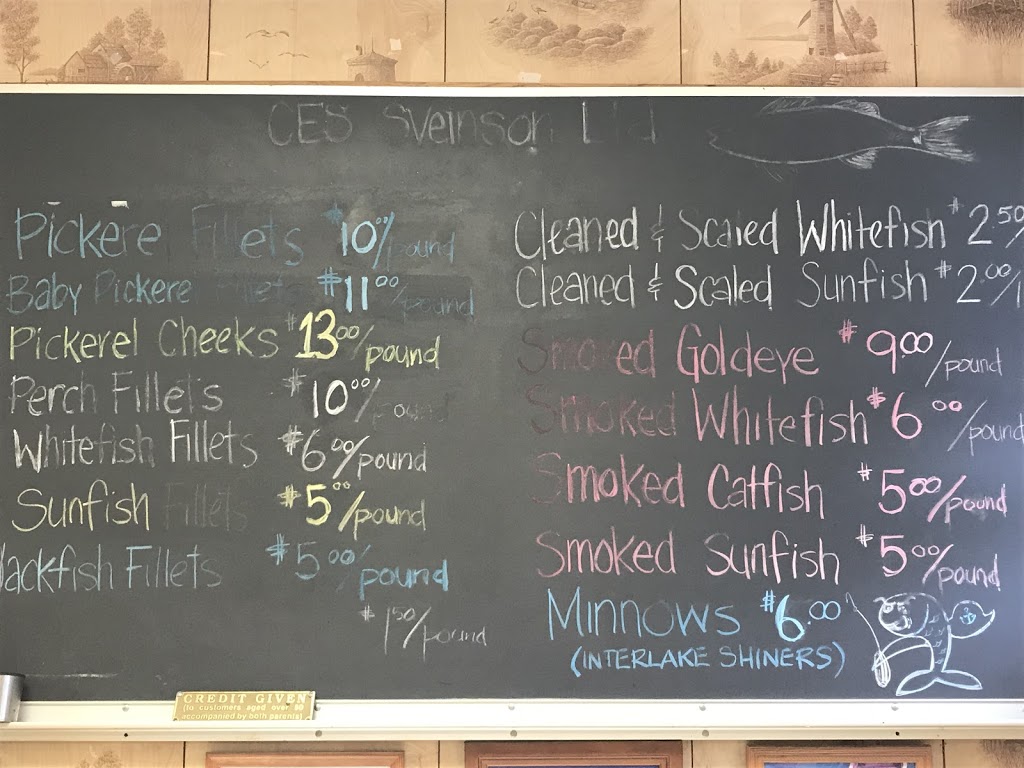 CES Sveinson Ltd
Pickerel Fillets $10.00/pound
Baby Pickerel Fillets $11.00/pound
Pickerel Cheeks $13.00/pound
Perch Fillets $10.00/pound
Whitefish Fillets $6.00/pound
Sunfish Fillets $5.00/pound
Jackfish Fillets $5.00/pound
$1.50/pound
Cleaned & Scaled Whitefish $2.50/
Cleaned & Scaled Sunfish $2.00/
Smoked Goldeye $9.00/pound
Smoked Whitefish $6.00/pound
Smoked Catfish $5.00/pound
Smoked Sunfish $5.00/pound
Minnows $6.00
(INTERLAKE SHINERS)
CREDIT GIVEN
(to customers aged over 80
accompanied by both parents)